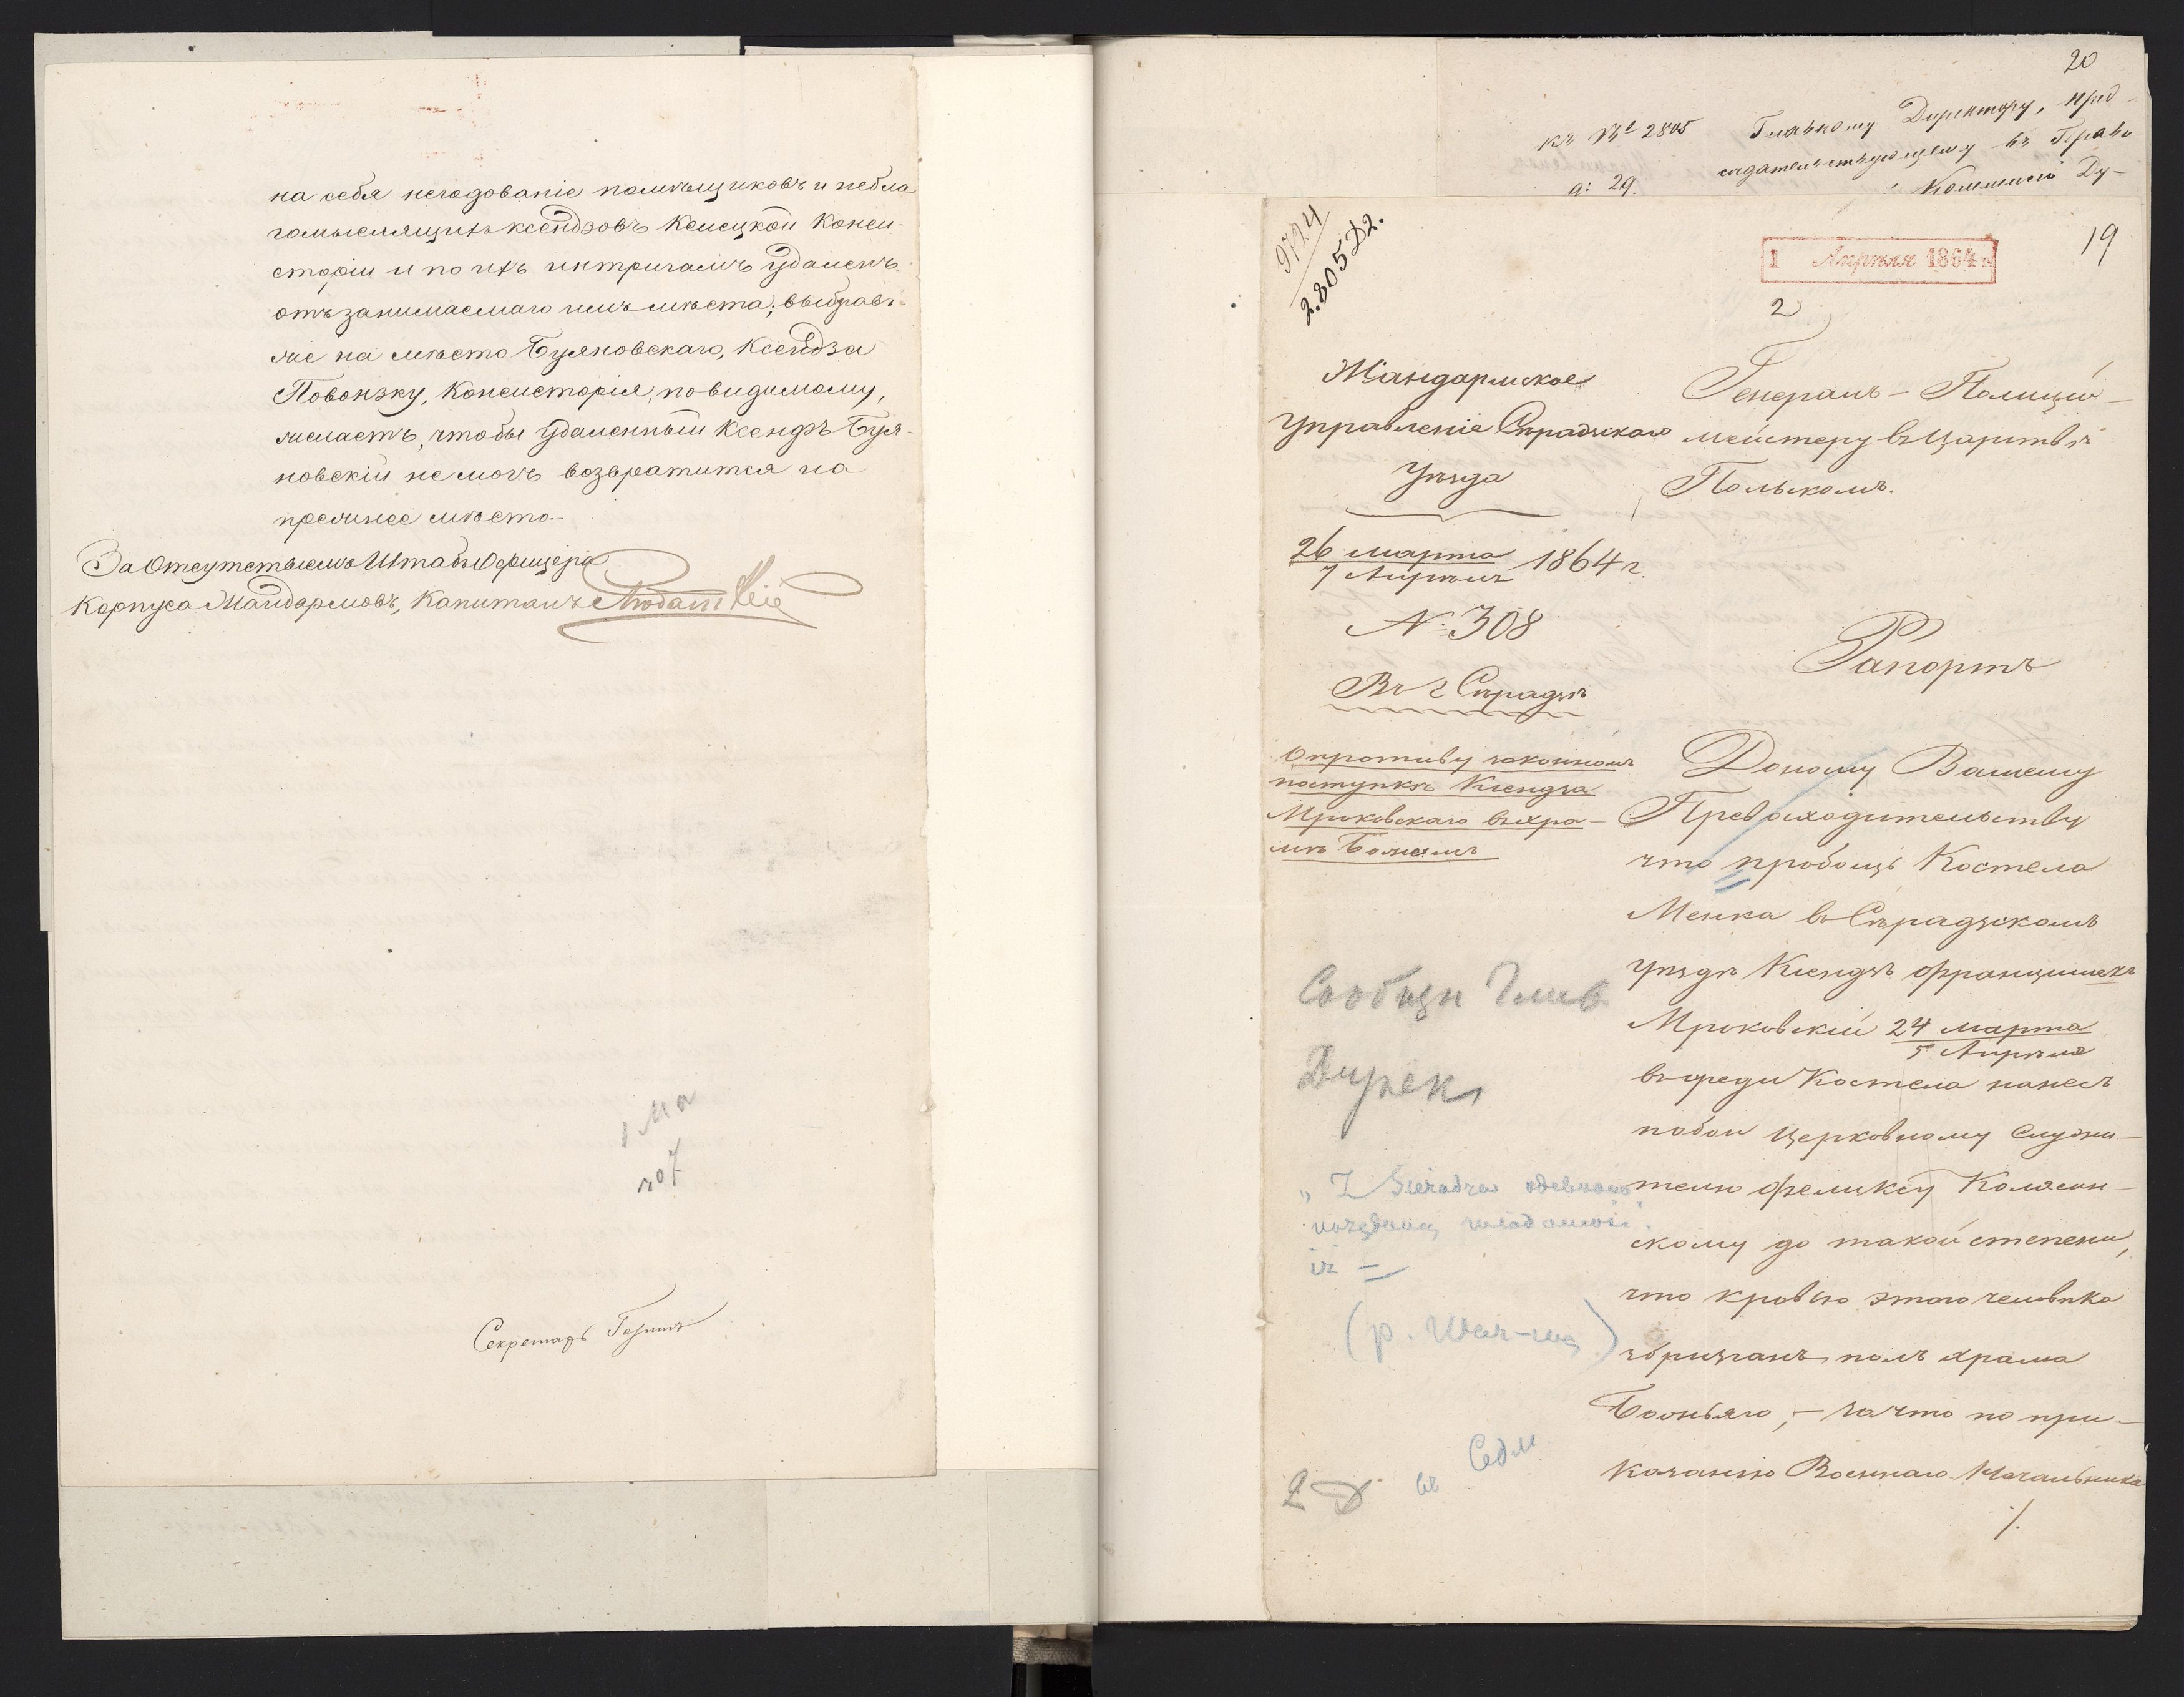 на себя негодованіе помѣщиковъ и небла
гомыслящихъ ксендзовъ Келецкой Конси-
сторіи и по ихъ интригамъ удаленъ
отъ занимаемаго имъ мѣста; выбрав-
шіе на мѣсто Буяновскаго, Ксендза
Повонзку, Консисторія, повидимому,
желаетъ, чтобы удаленный Ксендзъ Буя-
новскій не могъ возвратится на
прежнее мѣсто.-
За Отсутствіемъ Штабъ Офицера
Корпуса Жандармовъ, Капитанъ
Секретарь
20
къ № 2805
Главному Директору, пред-
сѣдательствующему въ Прав
а: 29.
Коммисіи Ду-
9724
2.805 Д2.
1 Апрѣля 1864 г.
19
2
Жандармское
Управленіе Сѣрадзскаго
Уѣзда
26 марта
7 Апрѣля 1864 г.
№ 308
Въ г Сѣрадзѣ
О противу законномъ
поступкѣ Ксендза
Мроковскаго въ хра-
мѣ Божіемъ
Генералъ-Полиций-
мейстеру въ Царствѣ
Польскомъ.
Рапортъ
Доношу Вашему
Превосходительству
что пробощъ Костела
Менка въ Сѣрадзскомъ
Уѣздѣ Ксендзъ Францишекъ
Мроковскій 24 марта
5 Апрѣля
въ среди Костела нанесъ
побои Церковному Служи-
телю Феликсу Колясин-
скому до такой степени,
что кровью этого человѣка
збрызганъ полъ храма
Божьяго, - за что по при-
казанію Военнаго Начальника
/.
Сообщи Глав
Дирек
"Z Sieradza
iż -
2 Д